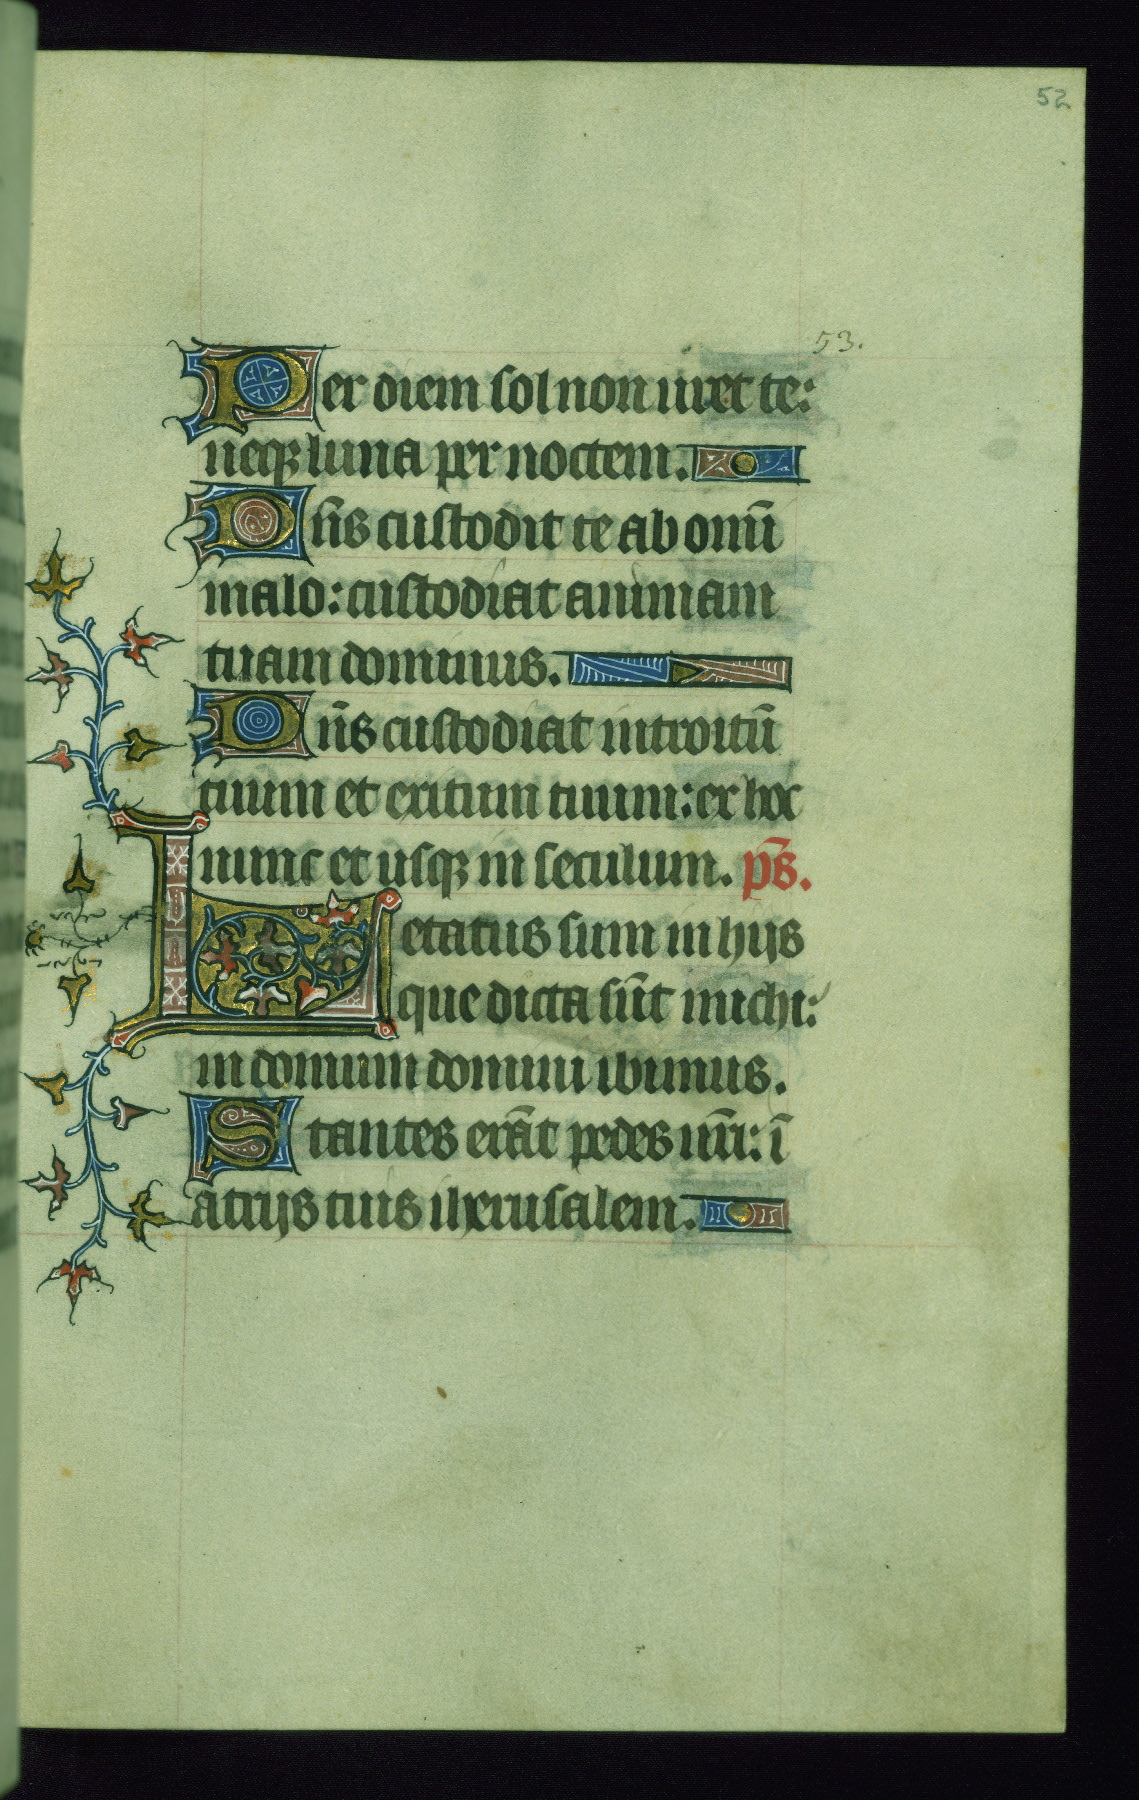 52
53.
Per diem sol non uret te:
neqꝫ luna per noctem.
Dn̄s custodit te ab omī
malo: custodiat animam
tuam dominus.
Dn̄s custodiat introitū
tuum et exitum tuum: ex hoc
nunc et usqꝫ in seculum. p̄s.
Letatus sum in hijs
que dicta sūt michi:
in domum domini ibimus.
Stantes erāt pedes nr̄i: ī
atrijs tuis iherusalem.